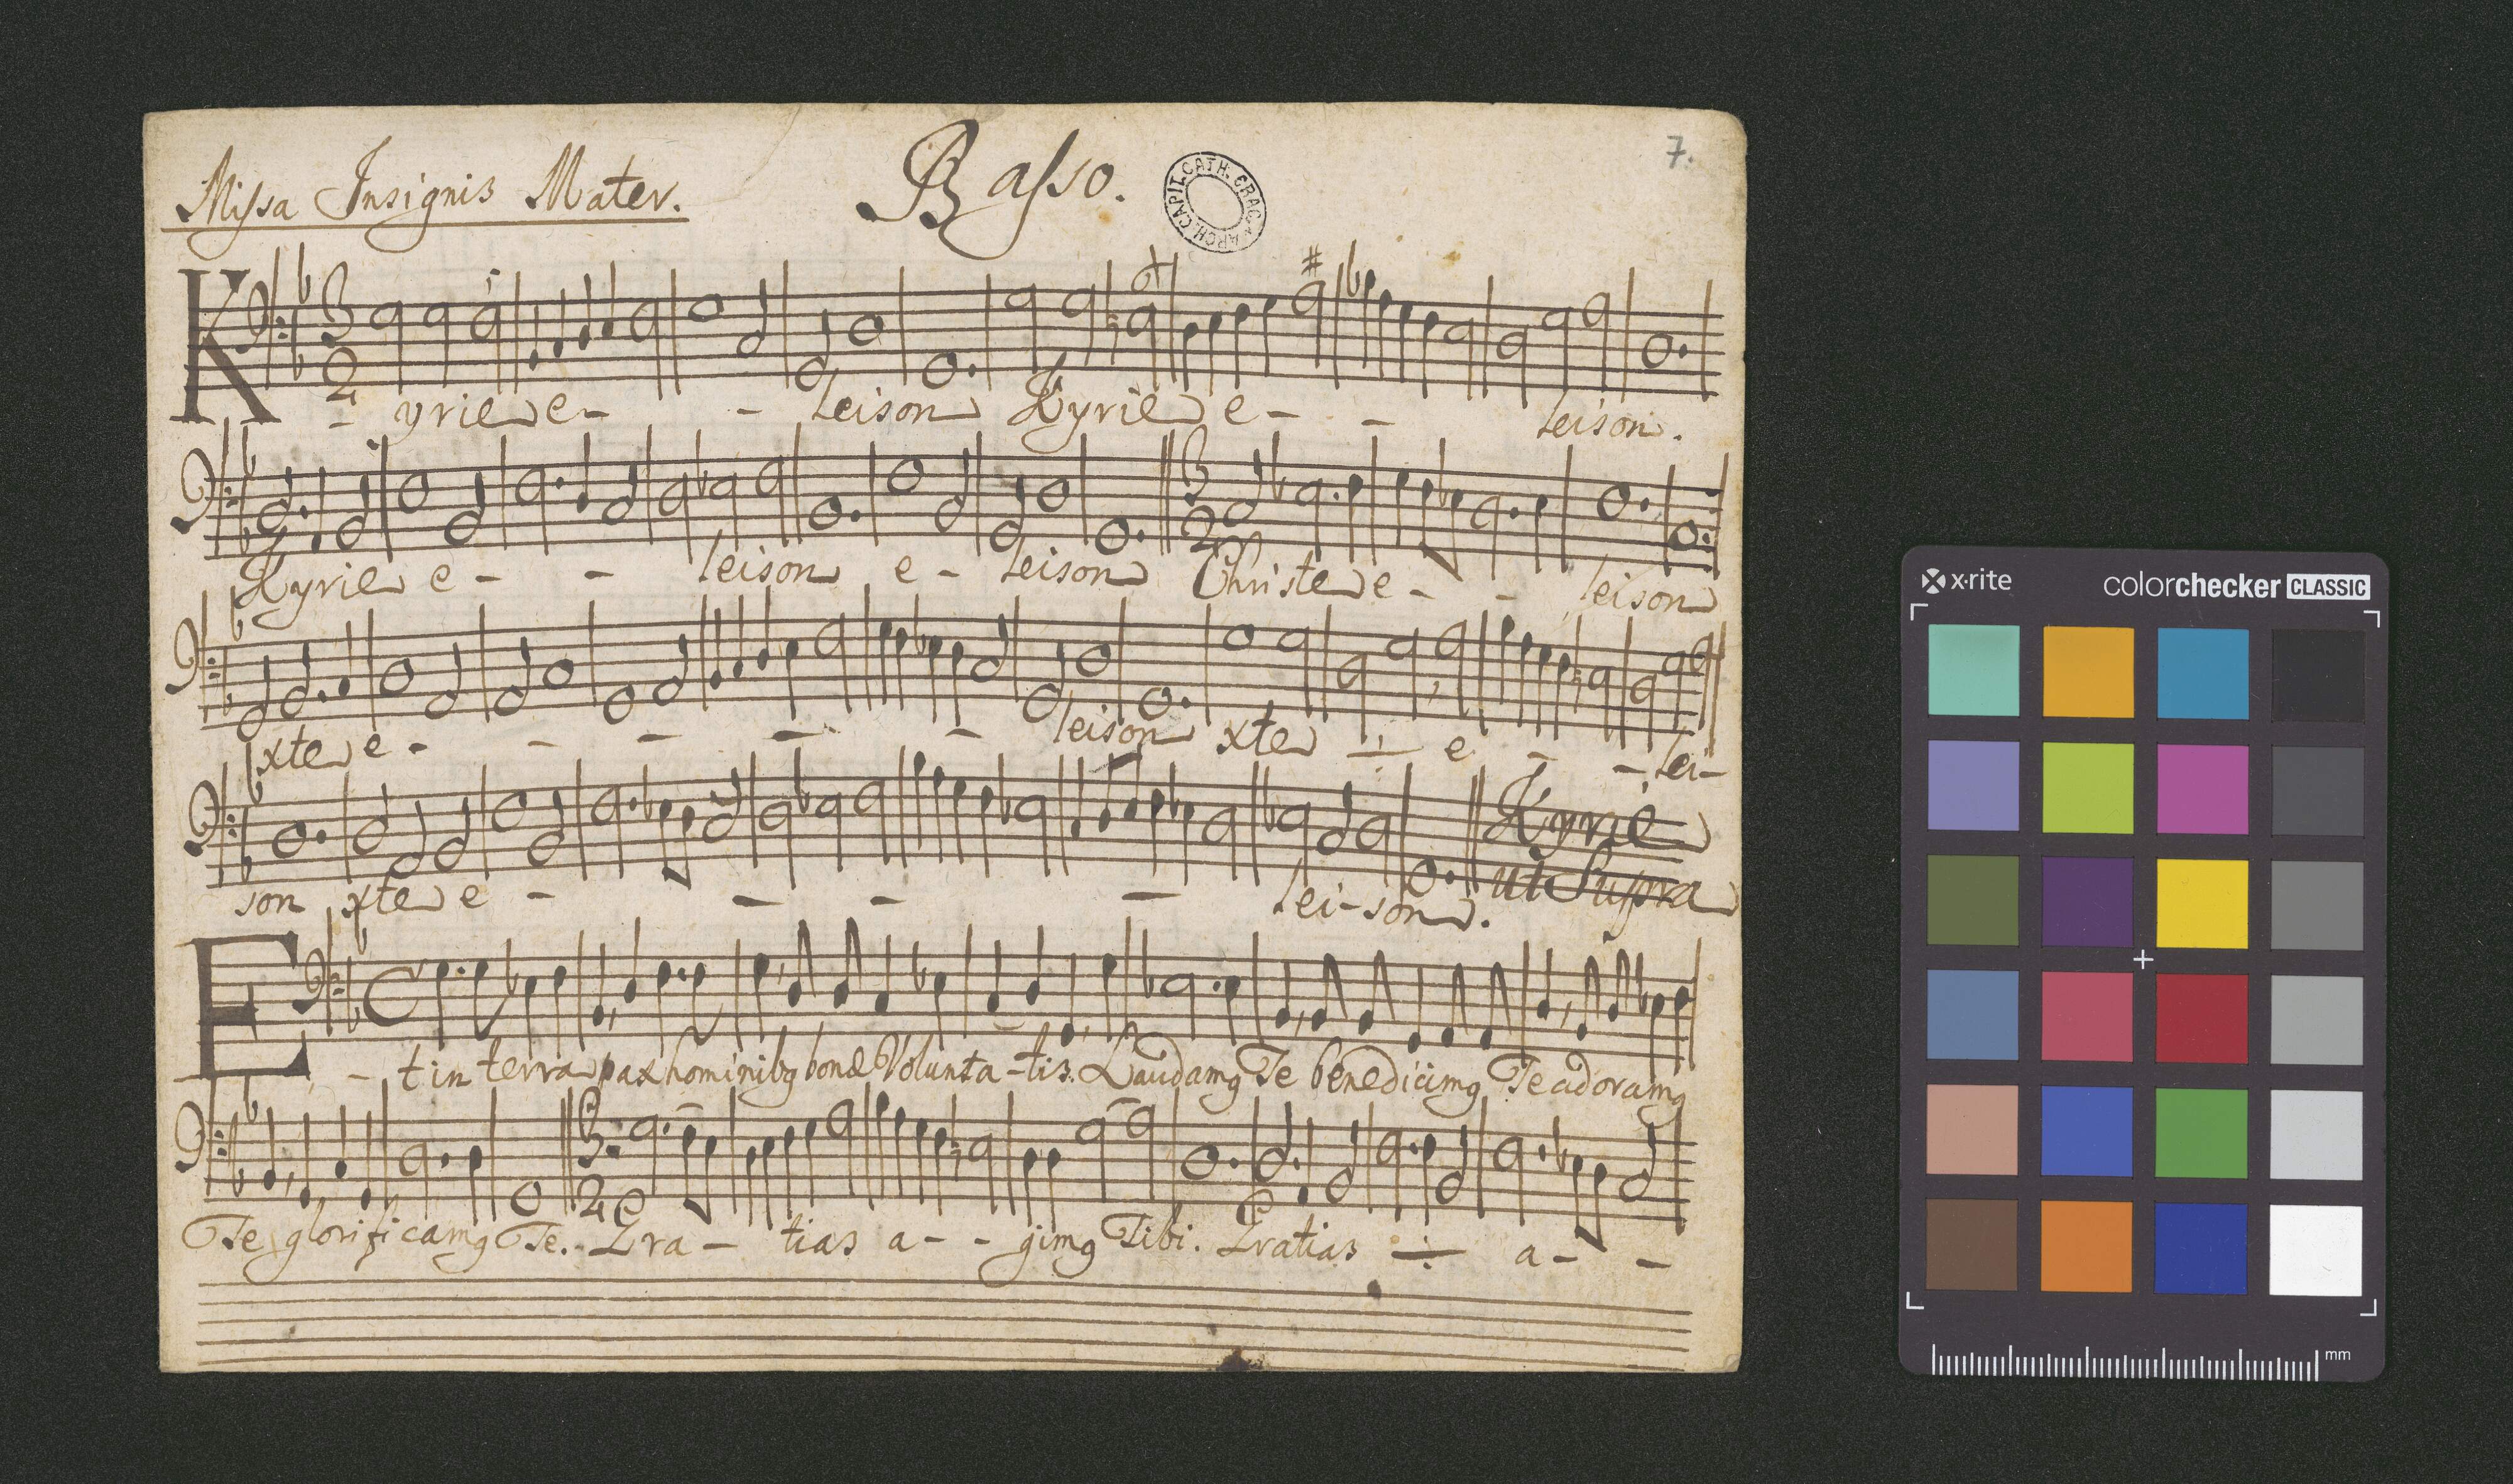 Missa Insignis Mater.
Basso.
ARCH. CAPIT. CATH. CRAC.
7.
K - yrie e - - leison Kyrie e - - leison.
Kyrie e - - leison e - leison Christe e - - leison
xte e - - - - - leison xte ÷ e - - lei-
son xte e - - - - lei-son. Kyrie
ut Supra
E - t in terra pax hominibq bonæ Volunta-tis. Laudamq Te benedicimq Te adoramq
Te glorificamq Te. Gra - tias a - - gimq Tibi. Gratias ÷ a - -
x·rite
colorchecker CLASSIC
mm